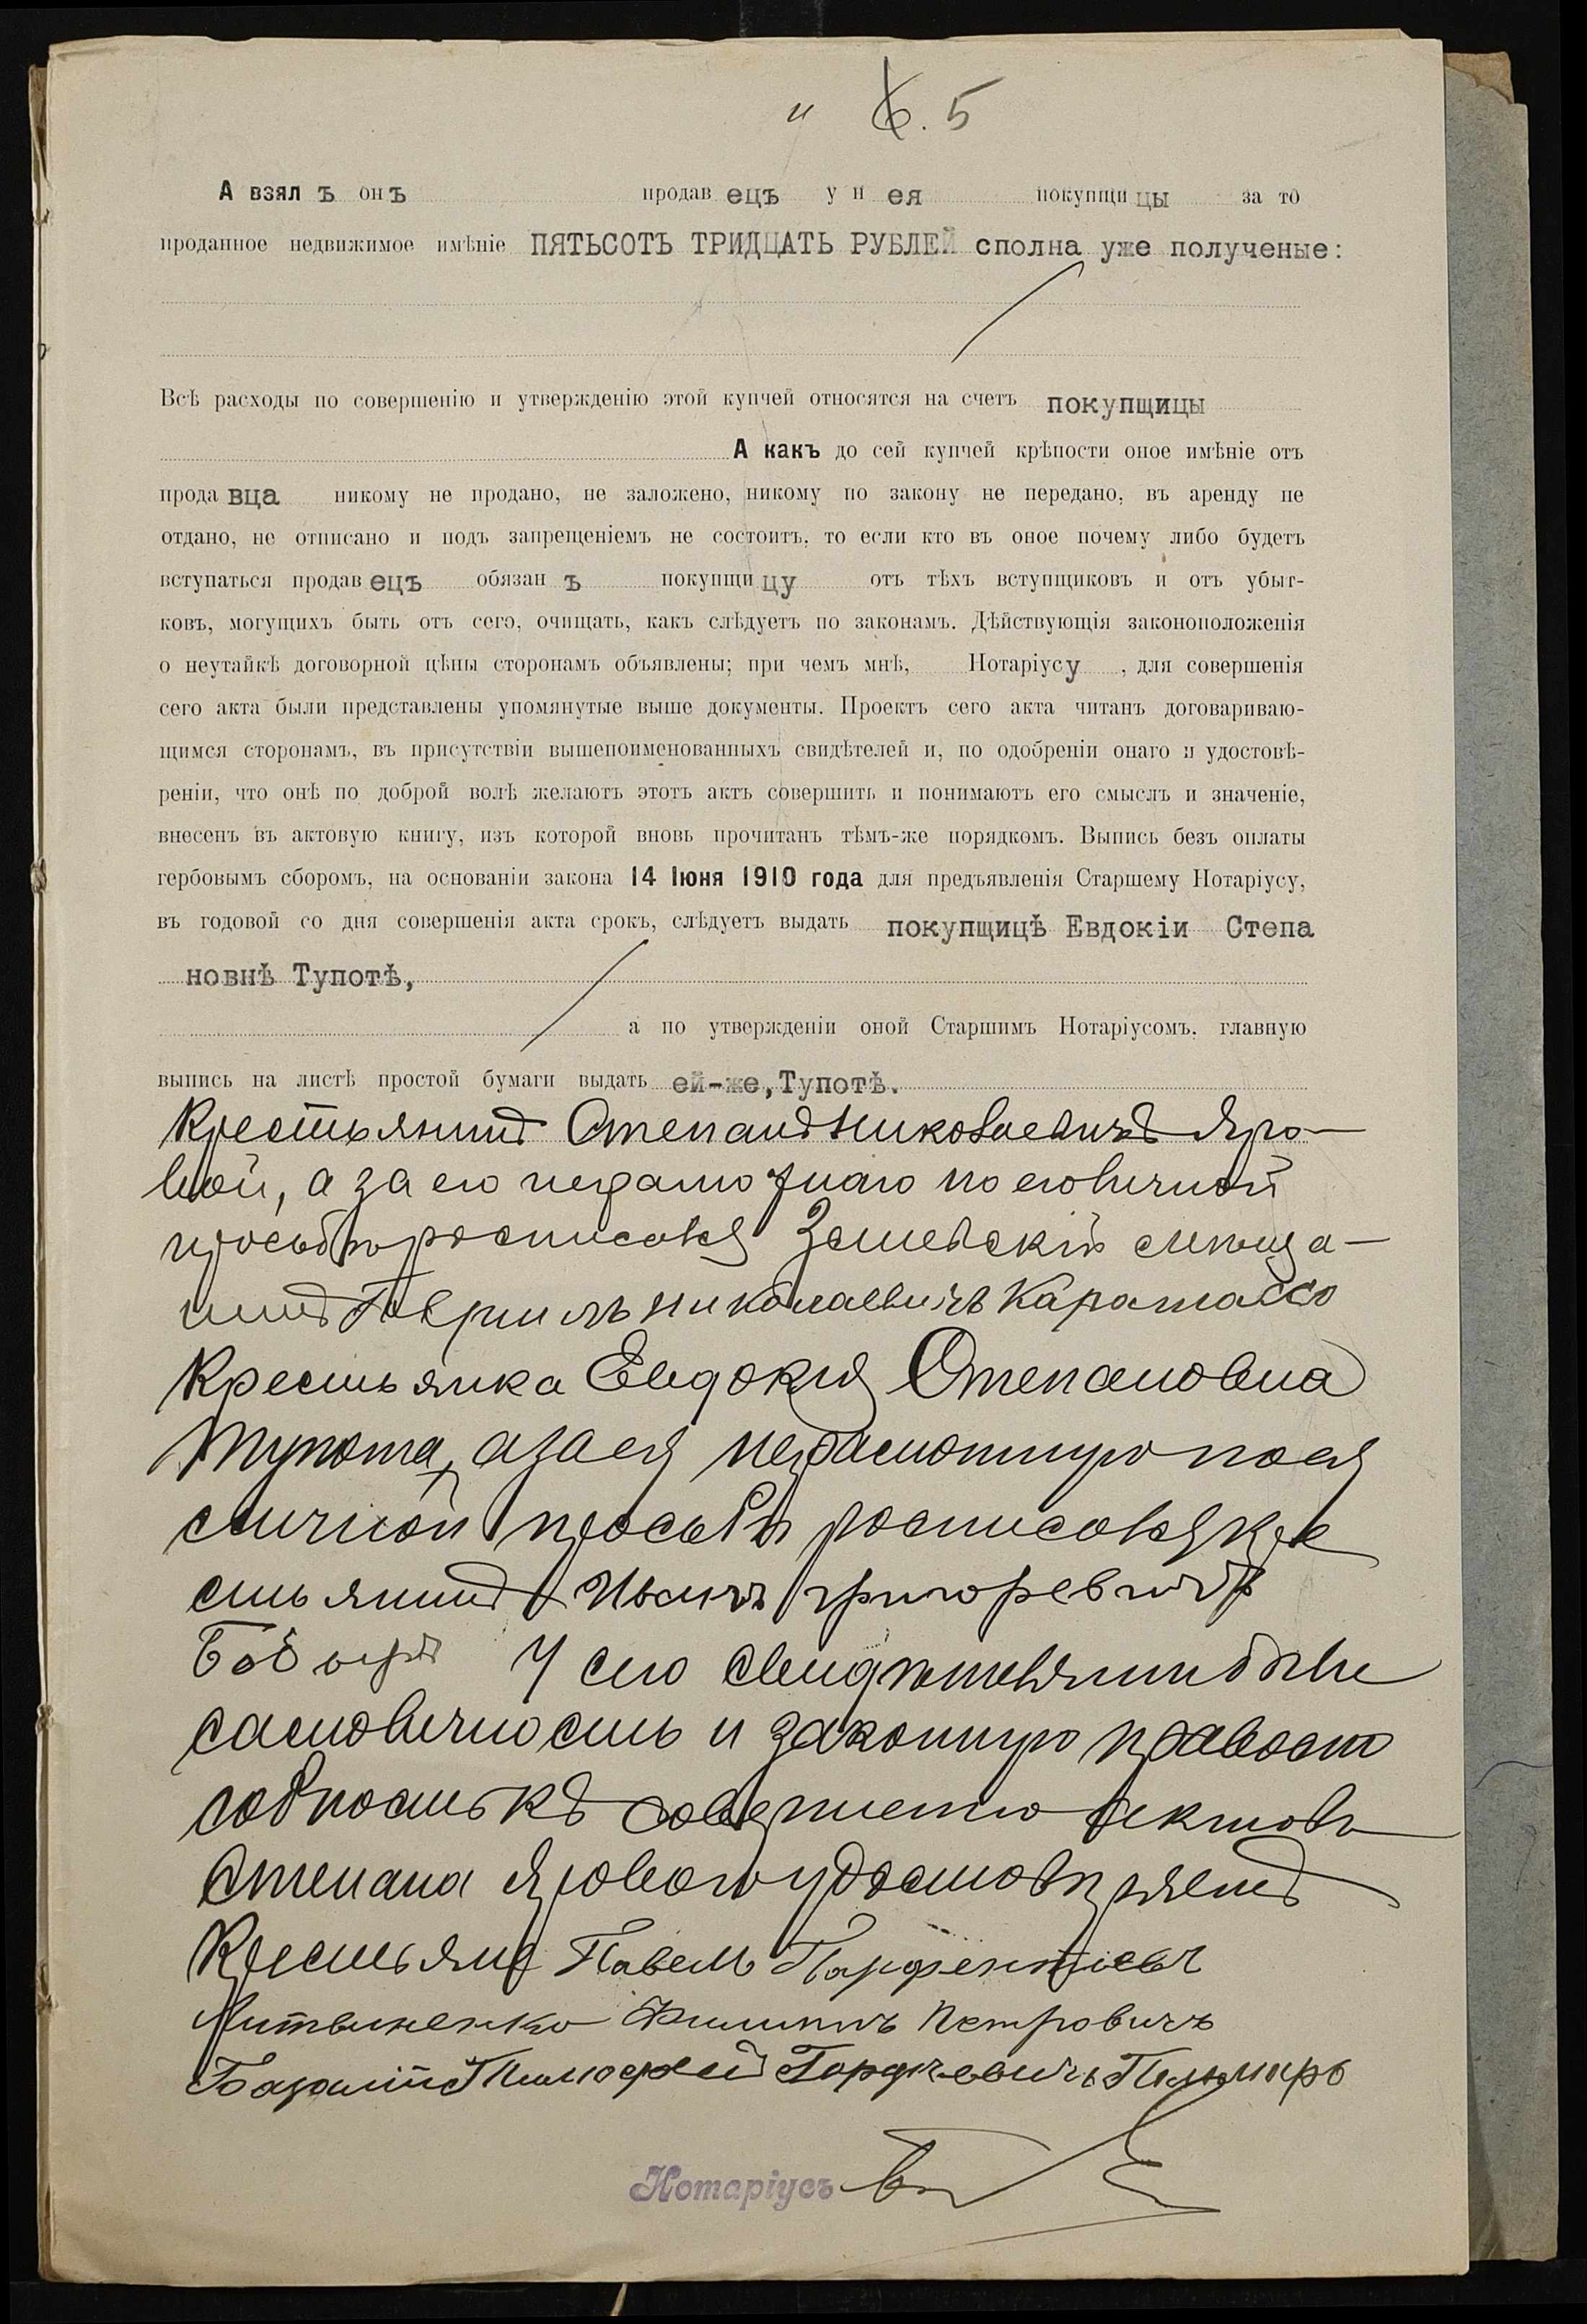 и 6. 5
А взялъ онъ продавецъ у нея покупщицы за то
проданное недвижимое имѣніе ПЯТЬСОТЪ ТРИДЦАТЬ РУБЛЕЙ сполна уже полученые:
Всѣ расходы по совершенію и утвержденію этой купчей относятся на счетъ покупщицы
А какъ до сей купчей крѣпости оное имѣніе отъ
продавца никому не продано, не заложено, никому по закону не передано, въ аренду не
отдано, не отписано и подъ запрещеніемъ не состоитъ, то если кто въ оное почему либо будетъ
вступаться продавецъ обязанъ покупщицу отъ тѣхъ вступщиковъ и отъ убыт-
ковъ, могущихъ быть отъ сего, очищать, какъ слѣдуетъ по законамъ. Дѣйствующія законоположенія
о неутайкѣ договорной цѣны сторонамъ объявлены; при чемъ мнѣ, Нотаріусу, для совершенія
сего акта были представлены упомянутые выше документы. Проектъ сего акта читанъ договариваю-
щимся сторонамъ, въ присутствіи вышепоименованныхъ свидѣтелей и, по одобреніи онаго и удостовѣ-
реніи, что онѣ по доброй волѣ желаютъ этотъ актъ совершить и понимаютъ его смыслъ и значеніе,
внесенъ въ актовую книгу, изъ которой вновь прочитанъ тѣмъ-же порядкомъ. Выпись безъ оплаты
гербовымъ сборомъ, на основаніи закона 14 Іюня 1910 года для предъявленія Старшему Нотаріусу,
въ годовой со дня совершенія акта срокъ, слѣдуетъ выдать покупщицѣ Евдокіи Степа
новнѣ Тупотѣ,
а по утвержденіи оной Старшимъ Нотаріусомъ, главную
выпись на листѣ простой бумаги выдать ей-же, Тупотѣ.
Крестьянинъ Степанъ Николаевичъ Яро-
вой, а за его неграмотнаго по его личной
просьбѣ росписался Змиевскій мѣща-
нинъ Гавриилъ Николаевичъ
Крестьянка Евдокия Степановна
Тупота, а за ея неграмотную по ея
личной просьбѣ росписался кре
стьянинъ григоревичъ
У сего свидѣтелями были
самоличность и законную правоспо
собность къ совершению актовъ
Степана Ярового удостовѣряемъ
Крестьяне Павелъ Парфентиевъ
Литвиненко Филиппъ Петровичъ
Тимофей Гордѣевичъ
Нотаріусъ